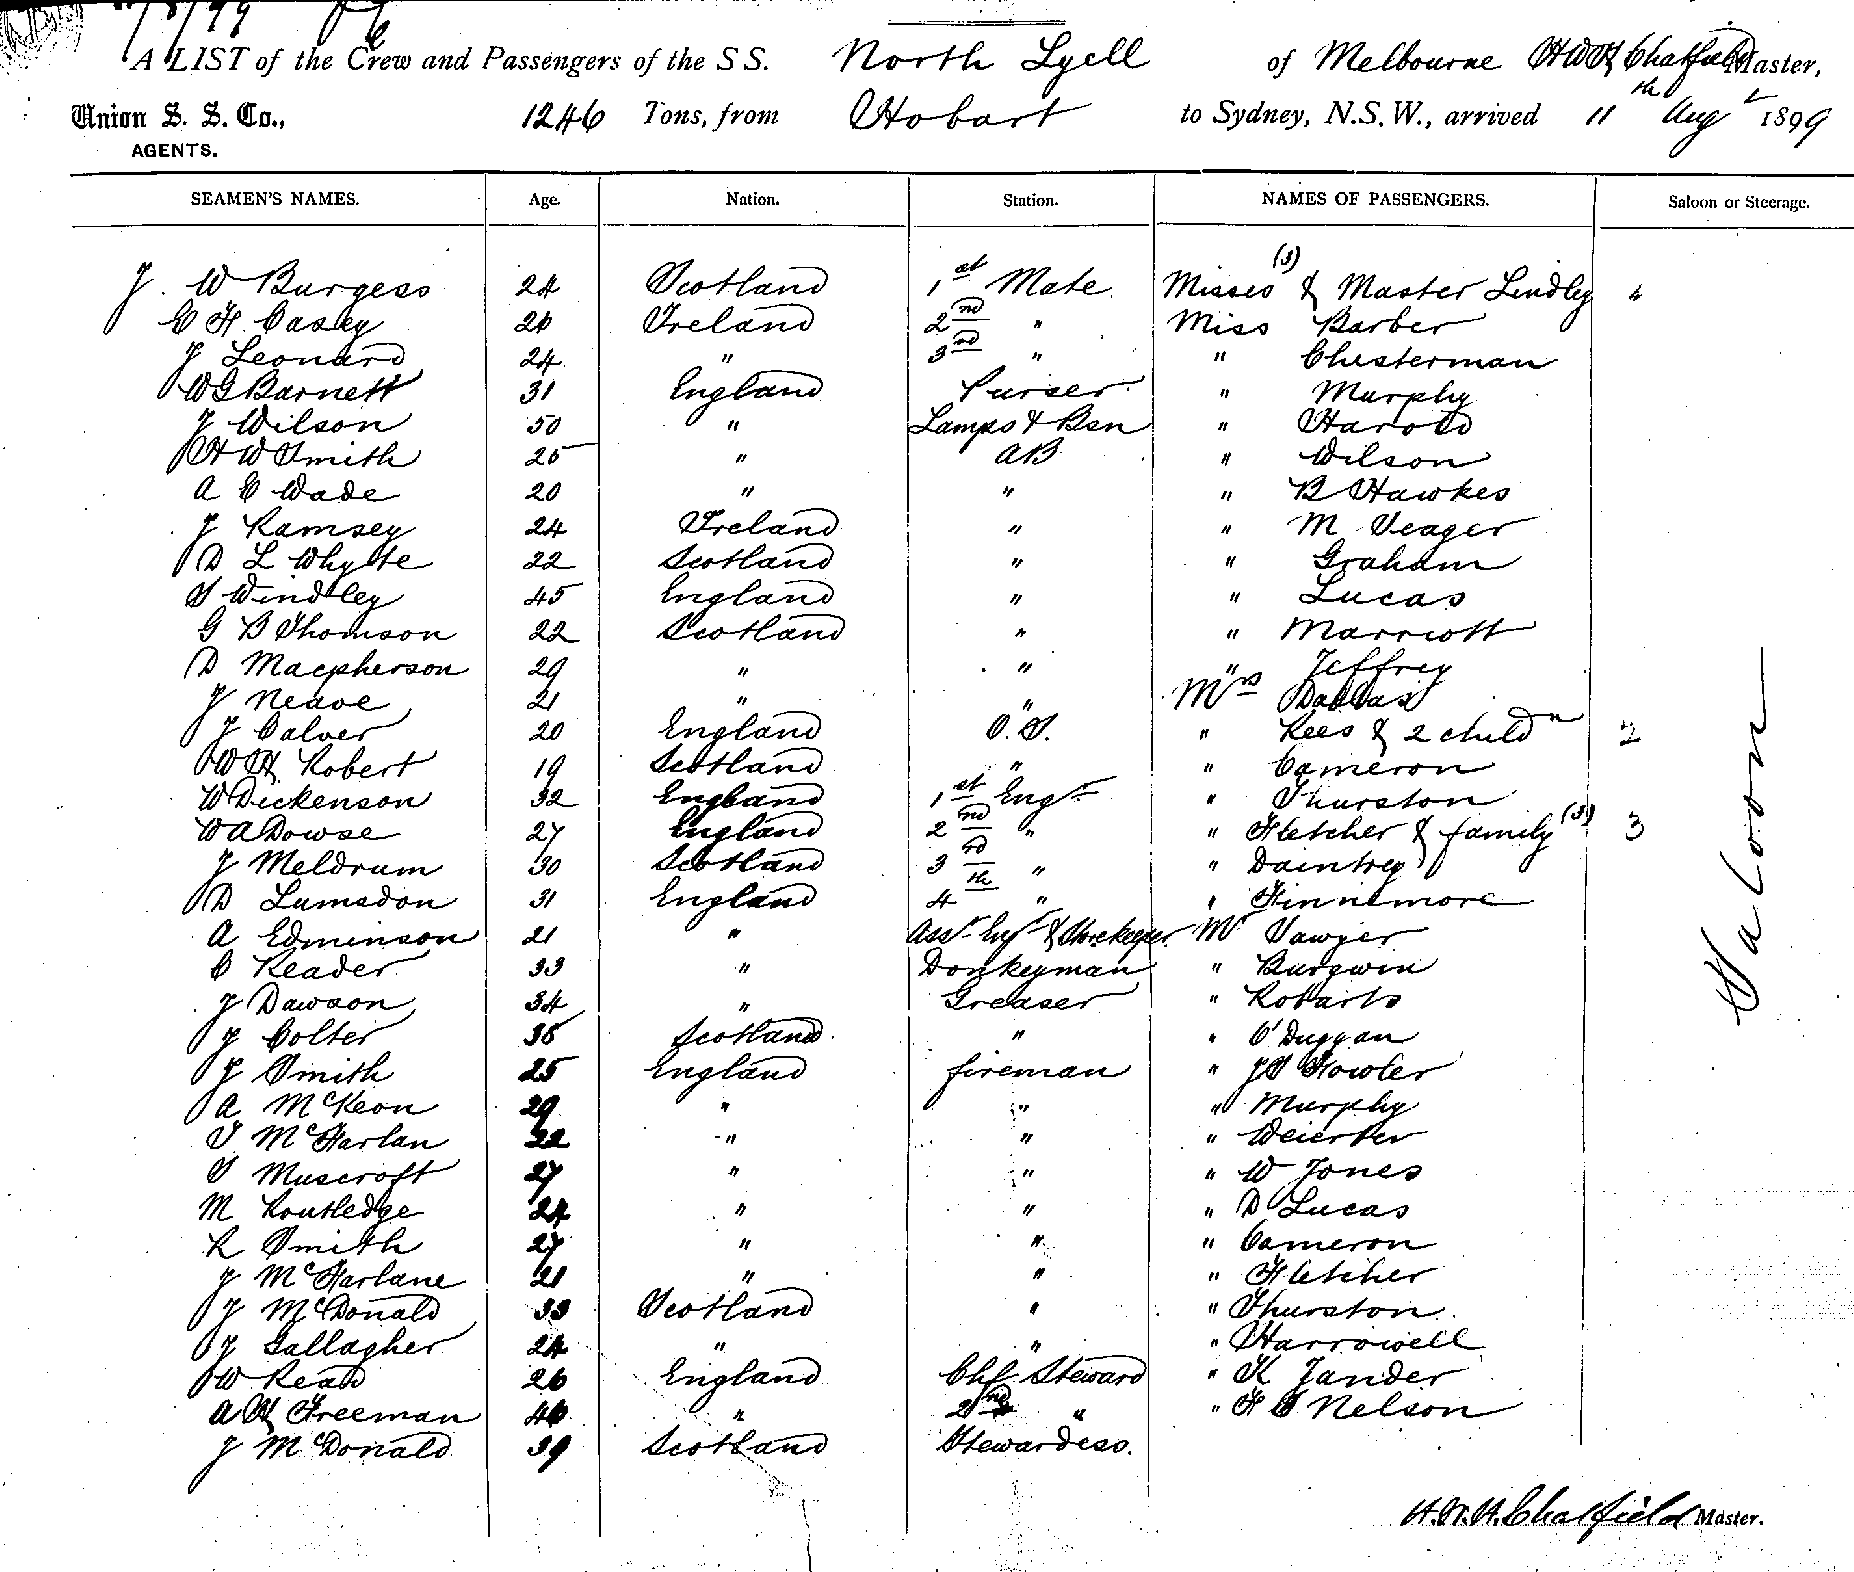 11/8/99
A LIST of the Crew and Passengers of the S S. North Lyell of Melbourne H W H Chatfield Master,
Union S. S. Co., 1246 Tons, from Hobart to Sydney, N.S.W., arrived 11th Augt 1899
AGENTS.
SEAMEN'S NAMES. Age. Nation. Station. NAMES OF PASSENGERS. Saloon or Steerage.
J. W Burgess 24 Scotland 1st Mate Misses (3) & Master Lindley 4
C H Casey 26 Ireland 2nd " Miss Barber
J Leonard 24 " 3rd " " Chesterman
W G Barnett 31 England Purser " Murphy
J Wilson 50 " Lamps & Bsn " Harold
H W Smith 25 " AB " Wilson
A C Wade 20 " " " B Hawkes
J Ramsey 24 Ireland " " M Seager
D L Whyte 22 Scotland " " Graham
S Windley 45 England " " Lucas
G B Thomson 22 Scotland " " Marriott
D Macpherson 29 " " " Jeffrey
J Neave 21 " " Mrs Dallas
J Calver 20 England O.S. " Rees & 2 childn 2
W H Robert 19 Scotland " " Cameron
W Dickenson 32 England 1st Engr " Thurston
W A Dowse 27 England 2nd " " Fletcher & family (3) 3
J Meldrum 30 Scotland 3rd " " Daintrey
D Lumsdon 31 England 4th " " Finnimore
A Edminson 21 " Asst Engr & Storekeeper Mr Sawyer
C Reader 33 " Donkeyman " Burgwin
J Dawson 34 " Greaser " Robarts
J Colter 35 Scotland " " O'Duggan
J Smith 25 England fireman " J S Fowler
A McKeon 29 " " " Murphy
T McHarlan 22 " " "
S Muscroft 27 " " " W Jones
M Routledge 24 " " " D Lucas
R Smith 27 " " " Cameron
J McFarlane 21 " " " Fletcher
J McDonald 33 Scotland " " Thurston
J Gallagher 24 " " " Harrowell
W Read 26 England Chf Steward " K Jander
A H Freeman 46 " 2nd " " F C Nelson
J McDonald 39 Scotland Stewardess.
Saloon
H. W. H. Chatfield Master.